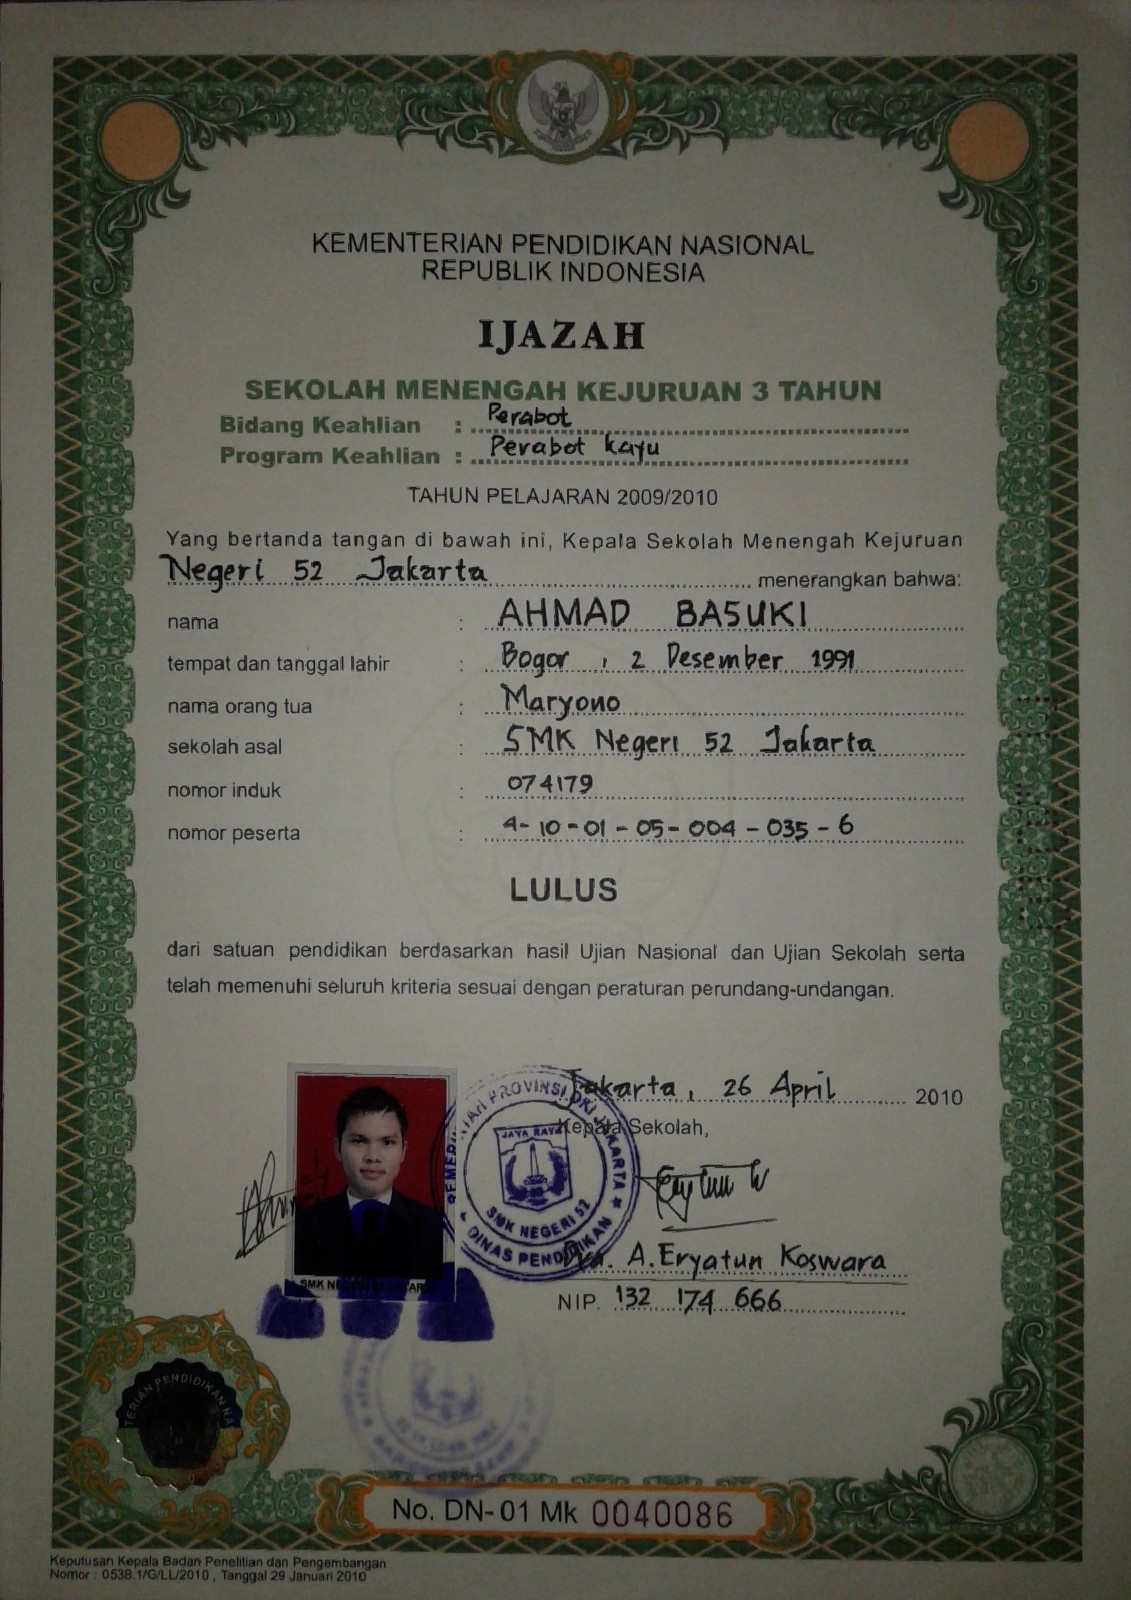 KEMENTERIAN PENDIDIKAN NASIONAL
REPUBLIK INDONESIA
IJAZAH
SEKOLAH MENENGAH KEJURUAN 3 TAHUN
Bidang Keahlian : Perabot
Program Keahlian : Perabot kayu
TAHUN PELAJARAN 2009/2010
Yang bertanda tangan di bawah ini, Kepala Sekolah Menengah Kejuruan
Negeri 52 Jakarta menerangkan bahwa:
nama : AHMAD BASUKI
tempat dan tanggal lahir : Bogor, 2 Desember 1991
nama orang tua : Maryono
sekolah asal : SMK Negeri 52 Jakarta
nomor induk : 074179
nomor peserta : 4-10-01-05-004-035-6
LULUS
dari satuan pendidikan berdasarkan hasil Ujian Nasional dan Ujian Sekolah serta
telah memenuhi seluruh kriteria sesuai dengan peraturan perundang-undangan.
Jakarta, 26 April 2010
Kepala Sekolah,
PEMERINTAH PROVINSI DKI JAKARTA
JAYA RAYA
SMK NEGERI 52
DINAS PENDIDIKAN
Dra. A. Eryatun Koswara
NIP. 132 174 666
TERIAN PENDIDIKAN NA
No. DN-01 Mk 0040086
Keputusan Kepala Badan Penelitian dan Pengembangan
Nomor : 0538.1/G/LL/2010, Tanggal 29 Januari 2010